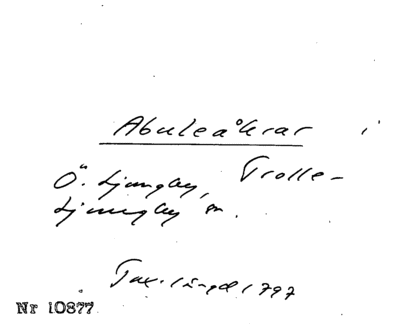 Abuleåkrar i
Ö. Ljungby, Trolle-
Ljungby sn.
Tax.längd 1797
Nr 10877